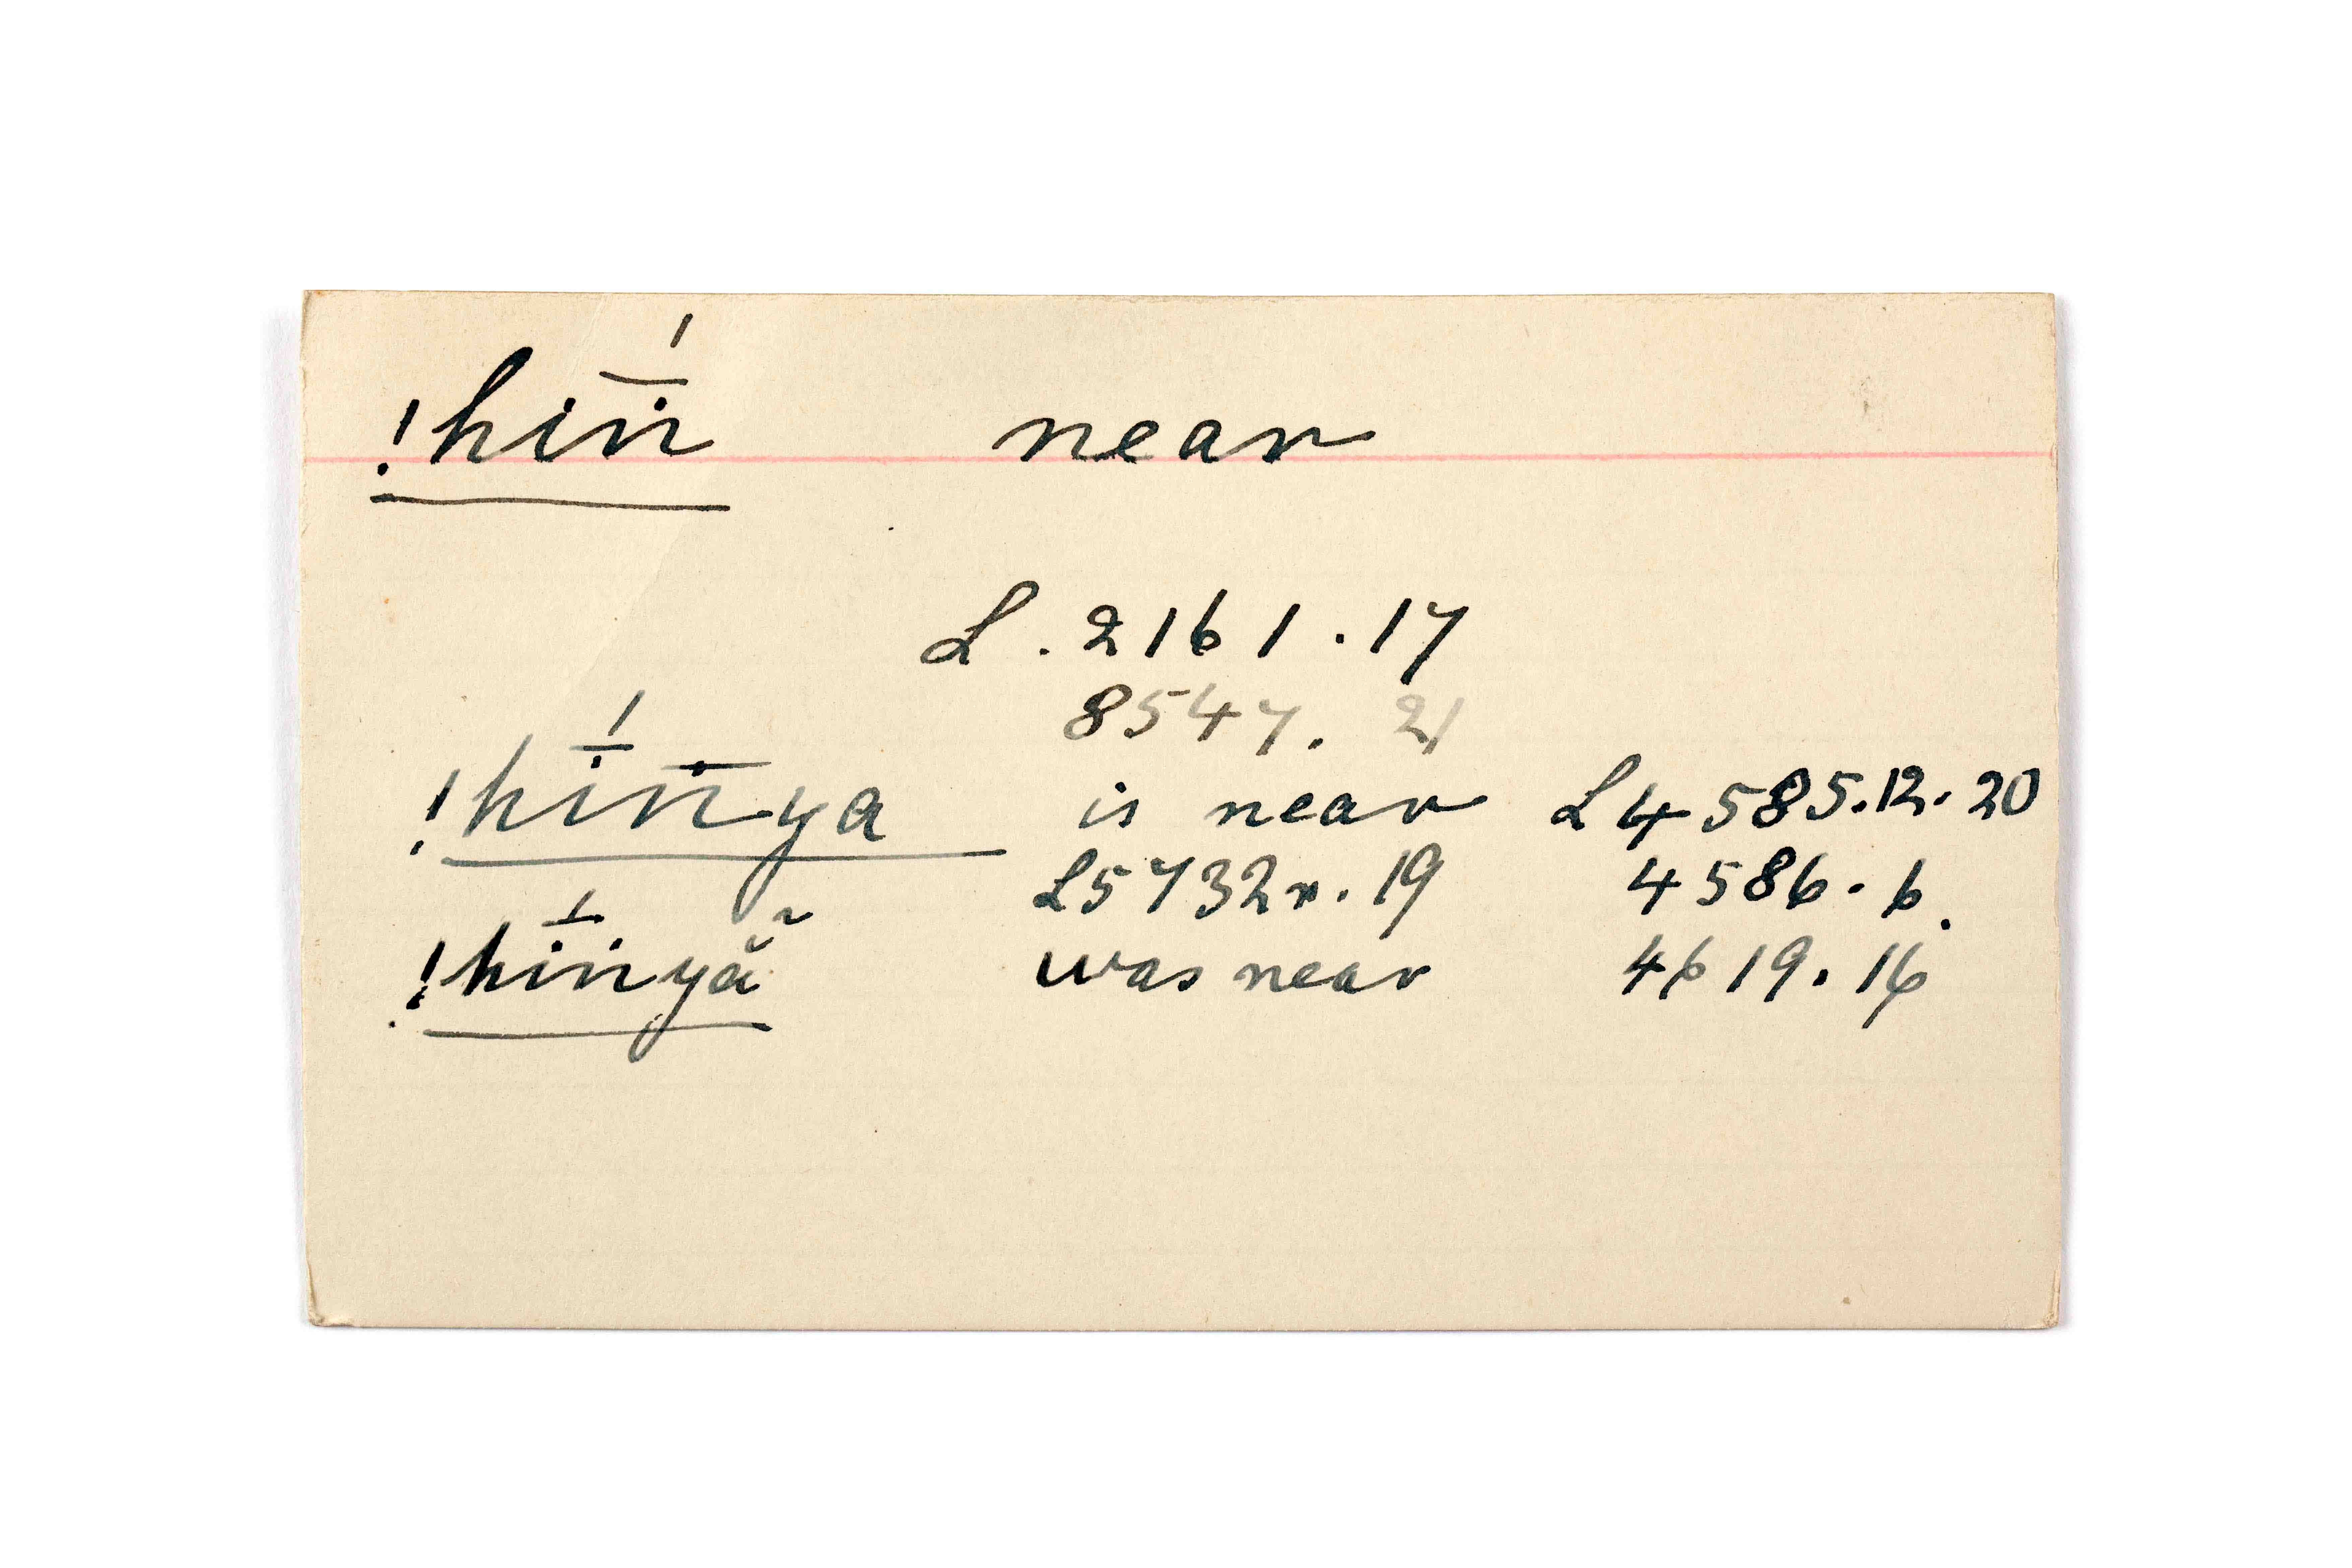 !hı̄́ṅ near
L. 2161. 17
8547. 21
!hī́ṅ̄ya is near L 4585. 12. 20
L 5732 r. 19 4586. 6.
!hī́ṅyā̆̃ was near 4619. 16